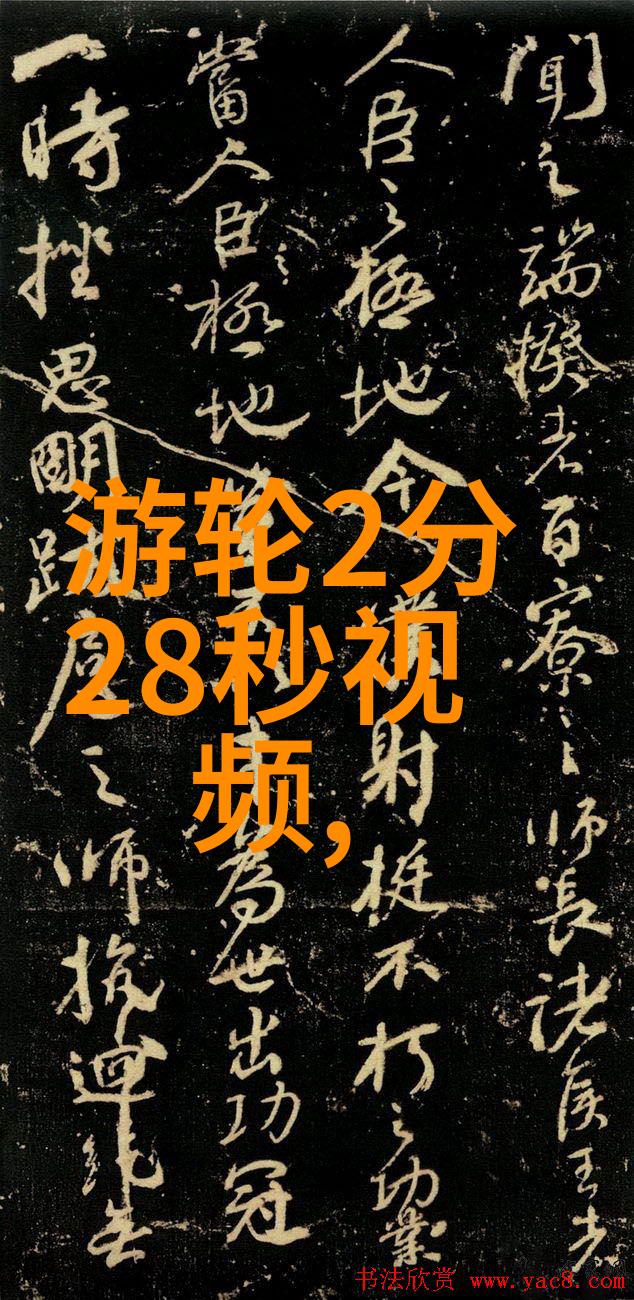 聞之端揆者百寮之師長諸侯王者
人臣之極地今僕射挺不朽之功業
當人臣之極地為世出功冠
一時挫思明跋扈之師抗迴紇無
游轮2分
28秒视
频,
书法欣赏 www.yac8.com